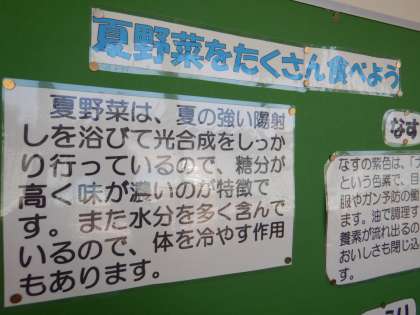 夏野菜をたくさん食べよう
夏野菜は、夏の強い陽射
しを浴びて光合成をしっか
り行っているので、糖分が
高く味が濃いのが特徴で
す。また水分を多く含んで
いるので、体を冷やす作用
もあります。
なす
なすの紫色は、「
という色素で、目
服やガン予防の働
ます。油で調理す
養素が流れ出るの
おいしさも閉じ込
す。